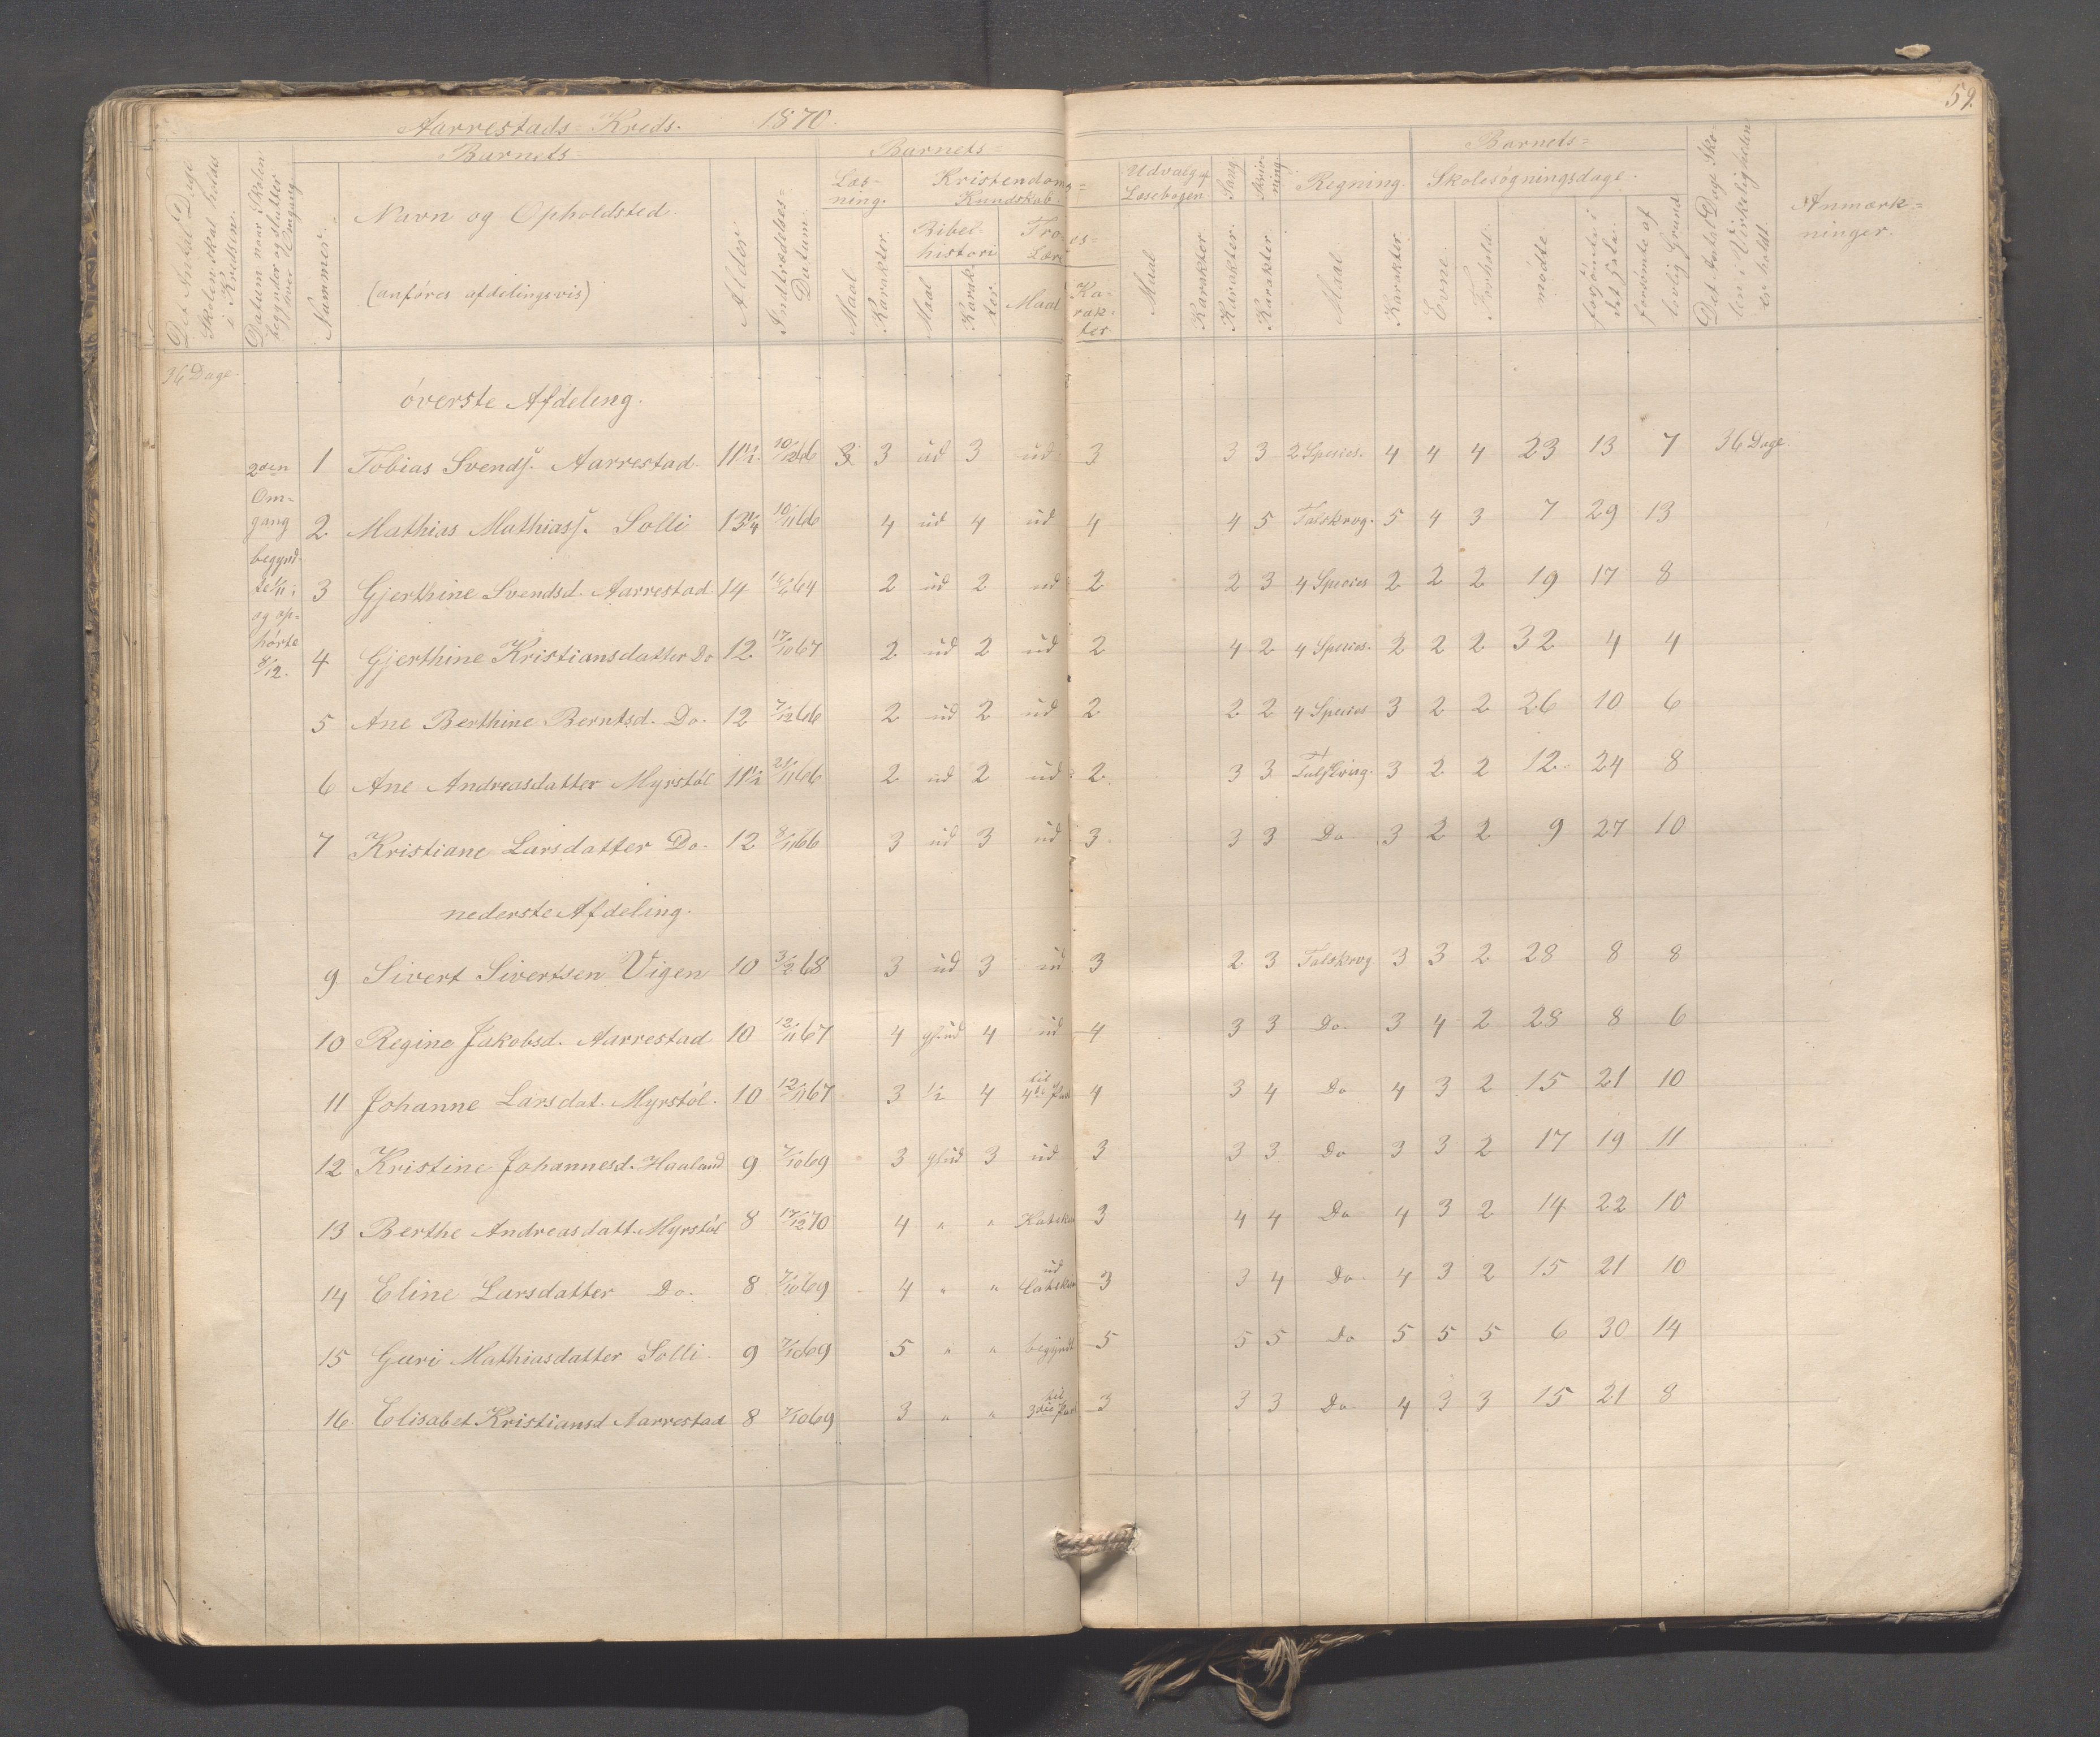 59.
Aarrestads=Kreds. 1870.
Barnets= Barnets= Barnets=
Det Antal Dage Skolen skal holdes i Kredsen.
Datum naar Skolen begynder og slutter hver Omgang
Nummer.
Navn og Opholdsted.
(anføres afdelingsvis)
Alder
Indtrædelses=Datum.
Læs-ning. Maal Karakter.
Kristendoms=Kundskab.
Bibel-histori Maal Karak-ter.
Troes=Lære Maal Ka-rak-ter
Udvalg af Læsebogen. Maal Karakter.
Sang Karakter.
Skriv-ning. Karakter
Regning. Maal Karakter.
Skolesøgningsdage.
Evne. Forhold. mødte. forsømte i det Hele. forsømte af lovlig Grund
Det Antal Dage Sko-len i Virkeligheden er holdt.
Anmærk=ninger.
36 Dage.
øverste Afdeling.
2den Om-gang begynd-te 1/11 og op-hørte 8/12.
1 Tobias Svends. Aarrestad. 11½ 10/12 66 3 3 ud 3 ud 3 3 3 2 Species. 4 4 4 23 13 7 36 Dage.
2 Mathias Mathiass. Solli 13¼ 10/11 66 4 ud 4 ud 4 4 5 Talskrvg. 5 4 3 7 29 13
3 Gjerthine Svendsd. Aarrestad 14 64 2 ud 2 ud 2 2 3 4 Species 2 2 2 19 17 8
4 Gjerthine Kristiansdatter Do 12 17/10 67 2 ud 2 ud 2 4 2 4 Species. 2 2 2 32 4 4
5 Ane Berthine Berntsd. Do. 12 7/12 66 2 ud 2 ud 2 2 2 4 Species 3 2 2 26 10 6
6 Ane Andreasdatter Myrstøl 11½ 21/11 66 2 ud 2 ud 2 3 3 Talskrivg. 3 2 2 12 24 8
7 Kristiane Larsdatter Do. 12 8/11 66 3 ud 3 ud 3 3 3 Do 3 2 2 9 27 10
nederste Afdeling.
9 Sivert Sivertsen Vigen 10 3/2 68 3 ud 3 ud 3 2 3 Talskrvg 3 3 2 28 8 8
10 Regine Jakobsd. Aarrestad 10 12/11 67 4 gl. ud 4 ud 4 3 3 Do. 3 4 2 28 8 6
11 Johanne Larsdat. Myrstøl. 10 12/11 67 3 ½ 4 til 4de Part 4 3 4 Do 4 3 2 15 21 10
12 Kristine Johannesd. Haaland 9 7/10 69 3 gl. ud 3 ud 3 3 3 Do 3 3 2 17 19 11
13 Berthe Andreasdatt. Myrstøl 8 17/12 70 4 " " 3 4 4 Do 4 3 2 14 22 10
14 Eline Larsdatter Do. 8 7/10 69 4 " " ud 3 3 4 Do. 4 3 2 15 21 10
15 Guri Mathiasdatter Solli. 9 7/10 69 5 " " begyndt 5 5 5 Do 5 5 5 6 30 14
16. Elisabet Kristiansd Aarrestad 8 7/10 69 3 " " til 3die Part 3 3 3 Do. 4 3 3 15 21 8